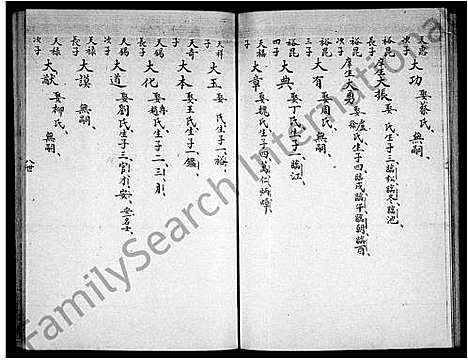 天憲次子 大功 娶蔡氏、無嗣、
裕昆長子 庠生大振 娶 氏生子三臨松臨冬臨池
裕昆次子 庠生大勇 娶盧氏生子四臨戌臨午臨朝臨酉
裕昆三子 大有 娶周氏、無嗣、
裕昆四子 大典 娶丁氏生子一臨江
天福子 大章 娶魏氏生子四萬仁炳暐
天祥子 大玉 娶 氏生子一裕、
天奇子 大本 娶王氏生子一鑑、
天錫長子 大化 娶趙氏生子二、
天錫次子 大道 娶劉氏生子三
天祿長子 大謨 無嗣、
天祿次子 大猷 娶柳氏、無嗣、
八世
FamilySearch International